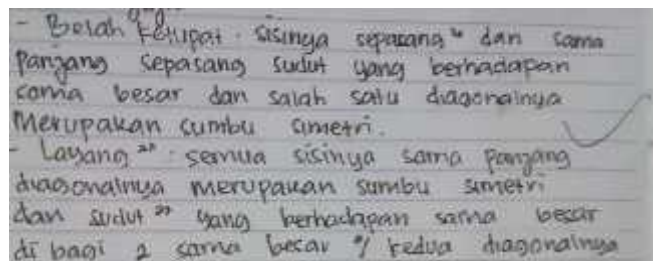 - Belah ketupat : sisinya sepasang" dan sama
panjang sepasang sudut yang berhadapan
sama besar dan salah satu diagonalnya
merupakan sumbu simetri.
- Layang "" : semua sisinya sama panjang
diagonalnya merupakan sumbu simetri
dan sudut "" yang berhadapan sama besar
di bagi 2 sama besar o/ kedua diagonalnya